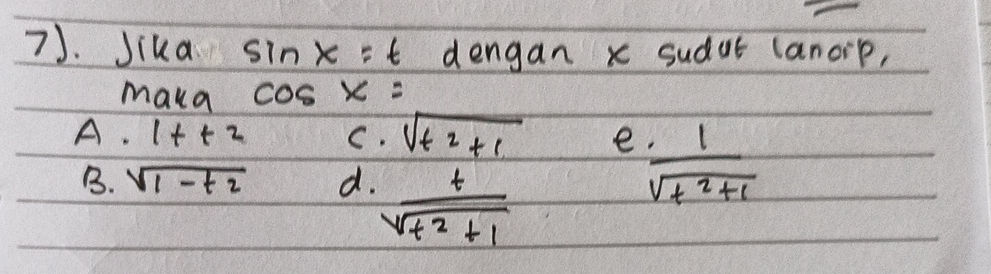 7). Jika sin x = t dengan x sudut lancip,
maka cos x =
A. 1 + t2 C. √t2+1 e. 1/√t2+1
B. √1-t2 d. t/√t2+1